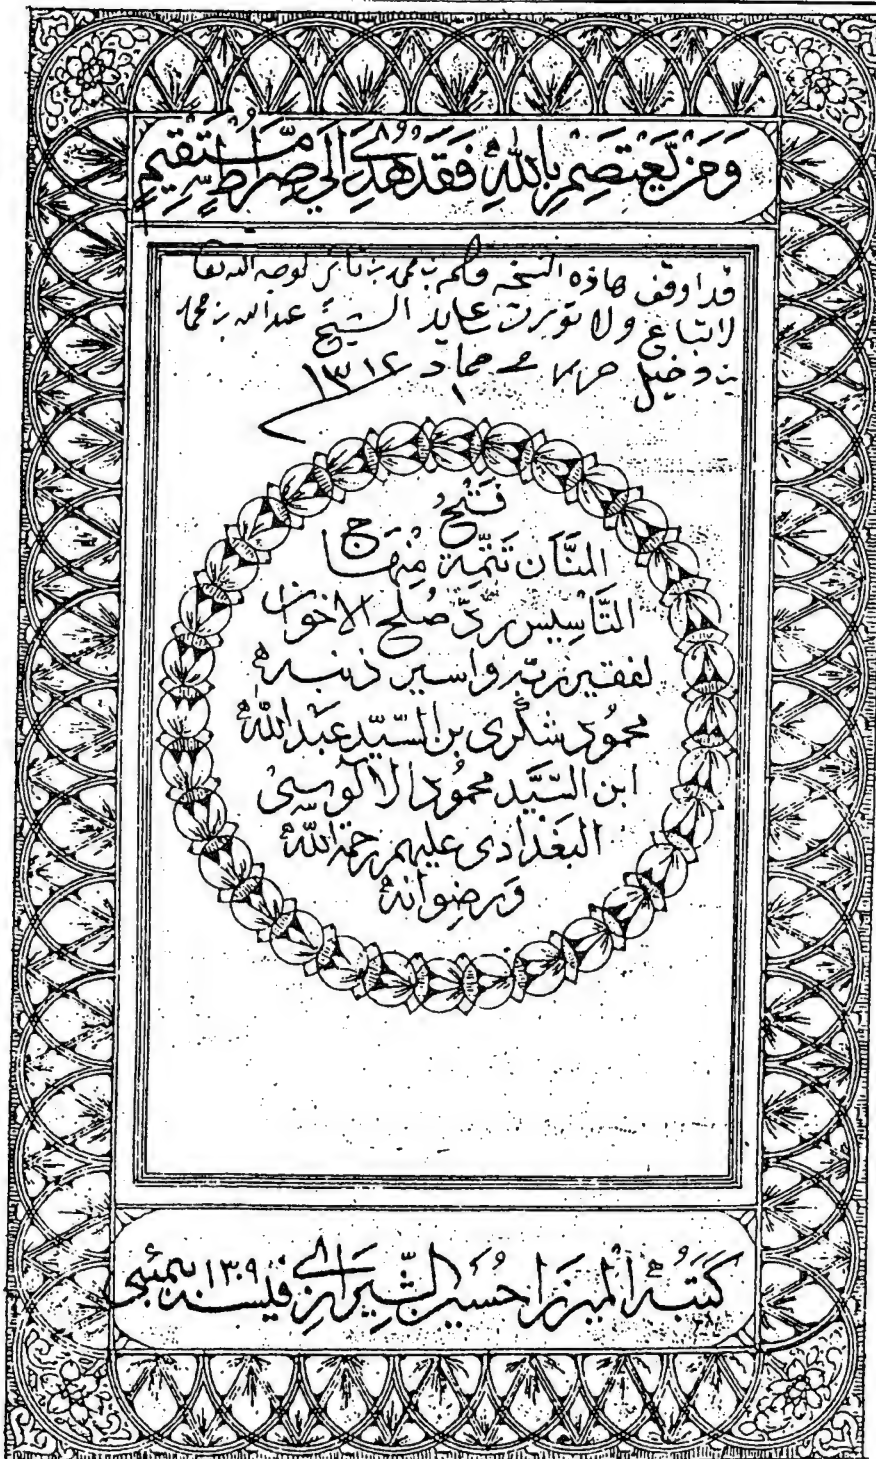 وَمَنْ يَعْتَصِمْ بِاللهِ فَقَدْ هُدِيَ إِلَى صِرَاطٍ مُسْتَقِيمٍ
قد اوقف هاذه النسخه بن محمد بن لوجه الله تعا
لاتباع ولا تورث الشيخ عبدالله بن محمد
بن دخيل جماد ١ ١٣١٢
فَتْحُ
المنَّان تَتِمَّة مِنهَاج
التَّاسِيس رَدّ صُلح الاخوان
لفقير ربّه واسير ذنبه
محمُود شكرى بن السّيّد عَبْد اللّٰه
ابن السَّيَّد محمُود الالآلوسِى
البَغْدَادى عليهم رحمة اللّٰه
وَرضوانه
كَتَبَهُ المِيرزَا حُسَين الشِّيرَازِي في سنه ١٣٠٩ بمبَئى